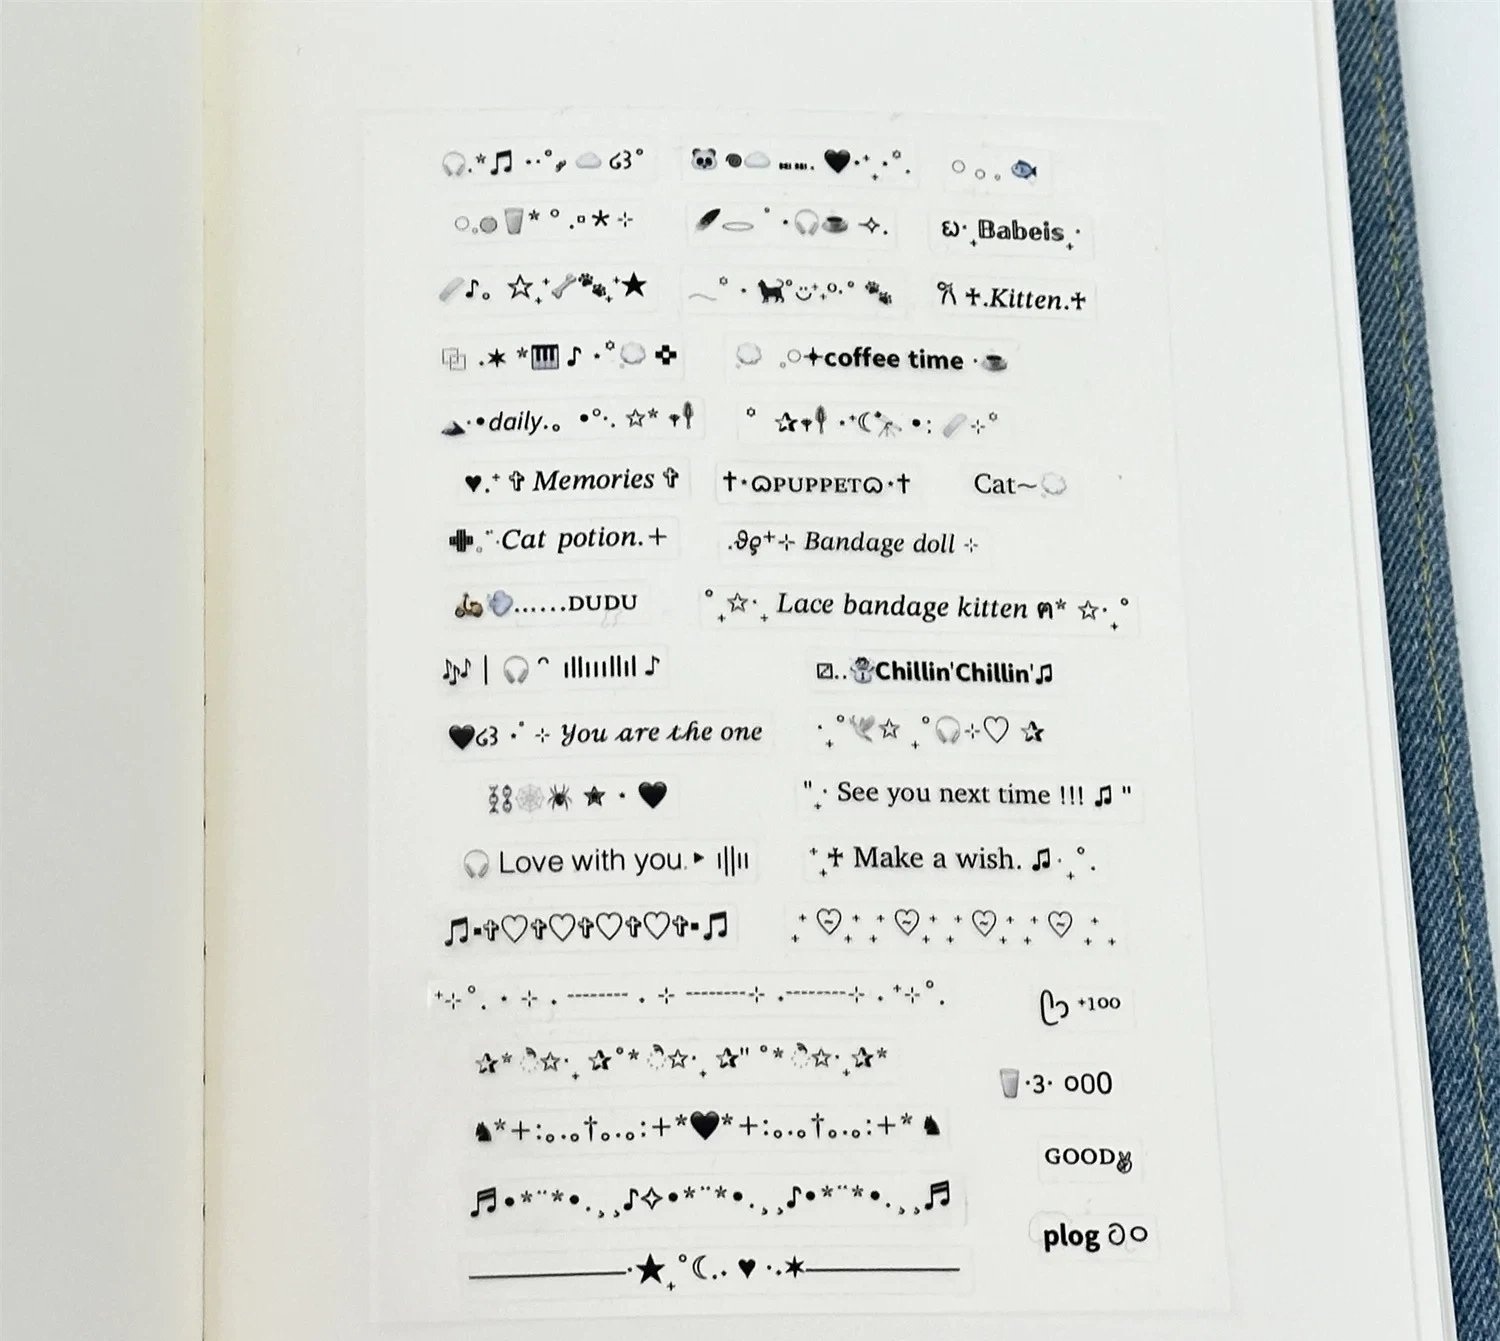 🎧.*♫ ··°, ☁ ᏊᏭ° 🐼 ☁ ...... 🖤·⁺₊·°. ○ ○ 。 🐟
○。🥛* ° .▫* ⊹ ° ·🎧☕ ✧. ω·₊Babeis₊·
🩹♪。 ☆₊⁺🦴🐾₊⁺★ ° · 🐈‍⬛° ⁺₊°·° 🐾 ♰.Kitten.♰
.✶ *🎹 ♪ ·°💭 ✜ 💭 。○✦coffee time ·☕
·•daily.。 •°·. ☆* ° ✰ ·⁺☾🔭 •: 🩹⊹°
♥.⁺ ✞ Memories ✞ ✝·ᗢPUPPETᗢ·✝ Cat~💭
。¨·Cat potion.+ .ϑϱ⁺⊹ Bandage doll ⊹
🛵💨......DUDU °₊☆·₊ Lace bandage kitten ฅ* ☆·₊°
♪♪♪ | 🎧 ᵔ ıllıııllıl ♪ ⚂..☃Chillin'Chillin'♫
🖤ᏊᏭ ·˚ ⊹ You are the one ·₊°🕊☆ ₊°🎧⊹♡ ✰
⛓🕸🕷 ✭ · 🖤 "₊· See you next time !!! ♫ "
🎧 Love with you.▸ ı||ıı ⁺₊♰ Make a wish. ♫·₊°.
♫▪✞♡✞♡✞♡✞♡✞▪♫ ₊⁺ ♡ ₊⁺ ₊⁺ ♡ ₊⁺ ₊⁺ ♡ ₊⁺ ₊⁺ ♡ ₊⁺ ₊
⁺⊹°. · ⊹ . -------- . ⊹ --------⊹ .--------⊹ . ⁺⊹°. ⁺¹⁰⁰
✰* ☆·₊ ✰°* ☆·₊ ✰" °* ☆·₊✰* 🥛·3· o00
♞*+:。.。†。.。:+*🖤*+:。.。†。.。:+* ♞ GOOD✌
♬•*¨*•.¸¸♪✧•*¨*•.¸¸♪•*¨*•.¸¸♬ plog ᘐ○
————·★₊°☾.. ♥ ·.✶————